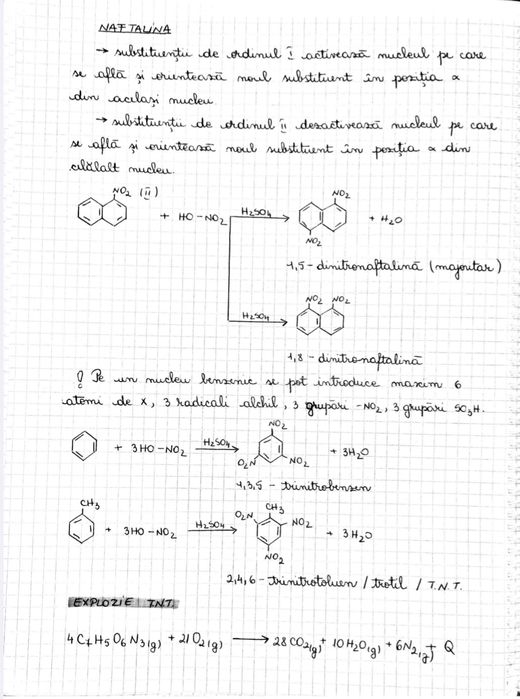 NAFTALINA
→ substituenții de ordinul I activează nucleul pe care
se află și orientează noul substituent în poziția α
din același nucleu
→ substituenții de ordinul II dezactivează nucleul pe care
se află și orientează noul substituent în poziția α din
celălalt nucleu.
NO2 (II) + HO-NO2 H2SO4 NO2 NO2 + H2O
1,5-dinitronaftalină (majoritar)
H2SO4 NO2 NO2
1,8-dinitro-naftalină
! Pe un nucleu benzenic se pot introduce maxim 6
atomi de X, 3 radicali alchil, 3 grupări -NO2, 3 grupări SO3H.
+ 3HO-NO2 H2SO4 NO2 O2N NO2 + 3H2O
1,3,5-trinitrobenzen
CH3 + 3HO-NO2 H2SO4 O2N CH3 NO2 NO2 + 3H2O
2,4,6-trinitrotoluen / trotil / T.N.T.
EXPLOZIE T.N.T.
4C7H5O6N3(g) + 21O2(g) → 28CO2(g) + 10H2O(g) + 6N2(g) + Q